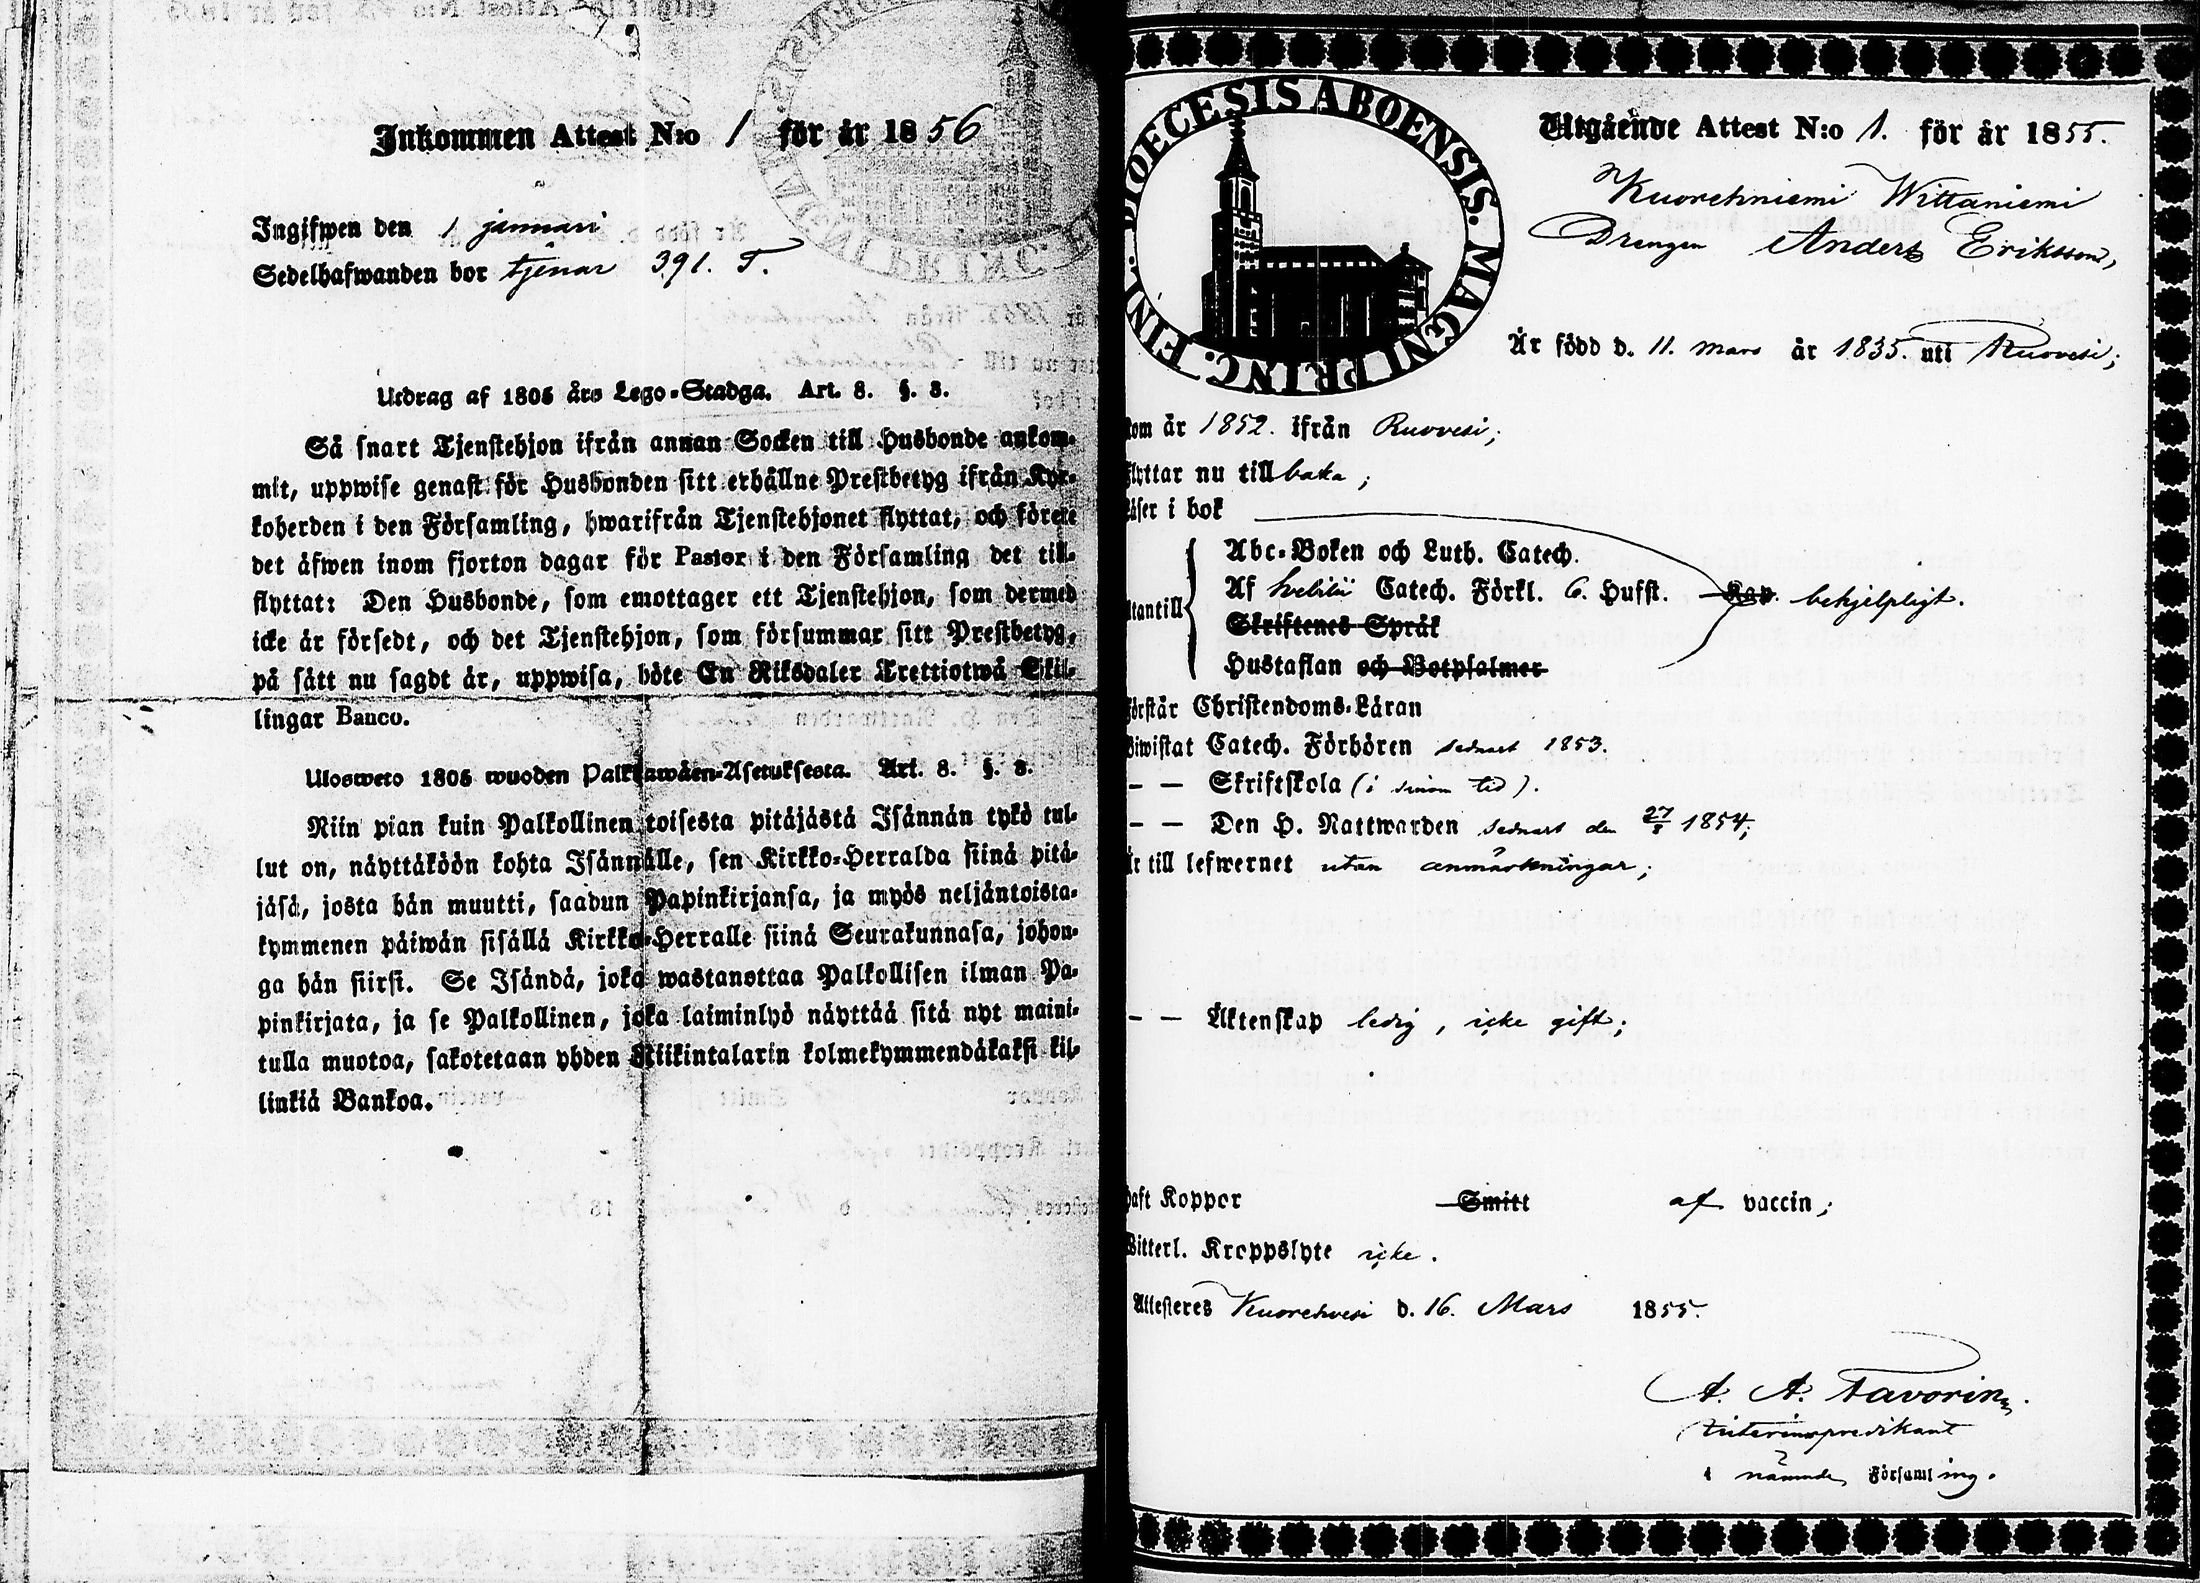 Inkommen Attest N:o 1 för år 1856
Ingifwen den 1 januari
Sedelhafwanden bor tjenar 391. T.
Utdrag af 1805 års Lego-Stadga. Art. 8. §. 3.
Så snart Tjenstehjon ifrån annan Socken till Husbonde ankom-
mit, uppwise genast för Husbonden sitt erhållne Prestbetyg ifrån Kyr-
koherden i den Församling, hwarifrån Tjenstehjonet flyttat, och förete
det äfwen inom fjorton dagar för Pastor i den Församling det till-
flyttat: Den Husbonde, som emottager ett Tjenstehjon, som dermed
icke är försedt, och det Tjenstehjon, som försummar sitt Prestbetyg,
på sätt nu sagdt är, uppwisa, böte En Riksdaler Trettiotwå Skil-
lingar Banco.
Ulosweto 1805 wuoden Palkkawäen-Asetuksesta. Art. 8. §. 3.
Niin pian kuin Palkollinen toisesta pitäjästä Isännän tykö tul-
lut on, näyttäköön kohta Isännälle, sen Kirkko-Herralda siinä pitä-
jäsä, josta hän muutti, saadun Papinkirjansa, ja myös neljäntoista-
kymmenen päiwän sisällä Kirkko-Herralle siinä Seurakunnasa, johon-
ga hän siirsi. Se Isändä, joka wastanottaa Palkollisen ilman Pa-
pinkirjata, ja se Palkollinen, joka laiminlyö näyttää sitä nyt maini-
tulla muotoa, sakotetaan yhden Riikintalarin kolmekymmendäkaksi kil-
linkiä Bankoa.
DIOECESIS ABOENSIS. MAGNI PRINC. FINL.
Utgående Attest N:o 1. för år 1855.
Kuorehniemi Wittaniemi
Drengen Anders Eriksson,
Är född d. 11. mars år 1835. uti Ruovesi;
kom år 1852. ifrån Ruovesi;
flyttar nu tillbaka;
läser i bok
Abc-Boken och Luth. Catech.
utantill Af Svebilii Catech. Förkl. 6. Hufst. Kap. behjelpligt.
Skriftenes Språk
Hustaflan och Botpsalmer
förstår Christendoms-Läran
Biwistat Catech. Förhören sednast 1853.
— — Skriftskola (i sinom tid).
— — Den H. Nattwarden sednast den 27/8 1854;
Är till lefwernet utan anmärkningar;
— — Äktenskap ledig, icke gift;
haft Koppor Smitt af vaccin;
Witterl. Kroppslyte icke.
Attesteres Kuorehvesi d. 16. Mars 1855.
A. A. Favorin.
Interimspredikant
i nämnde Församling.